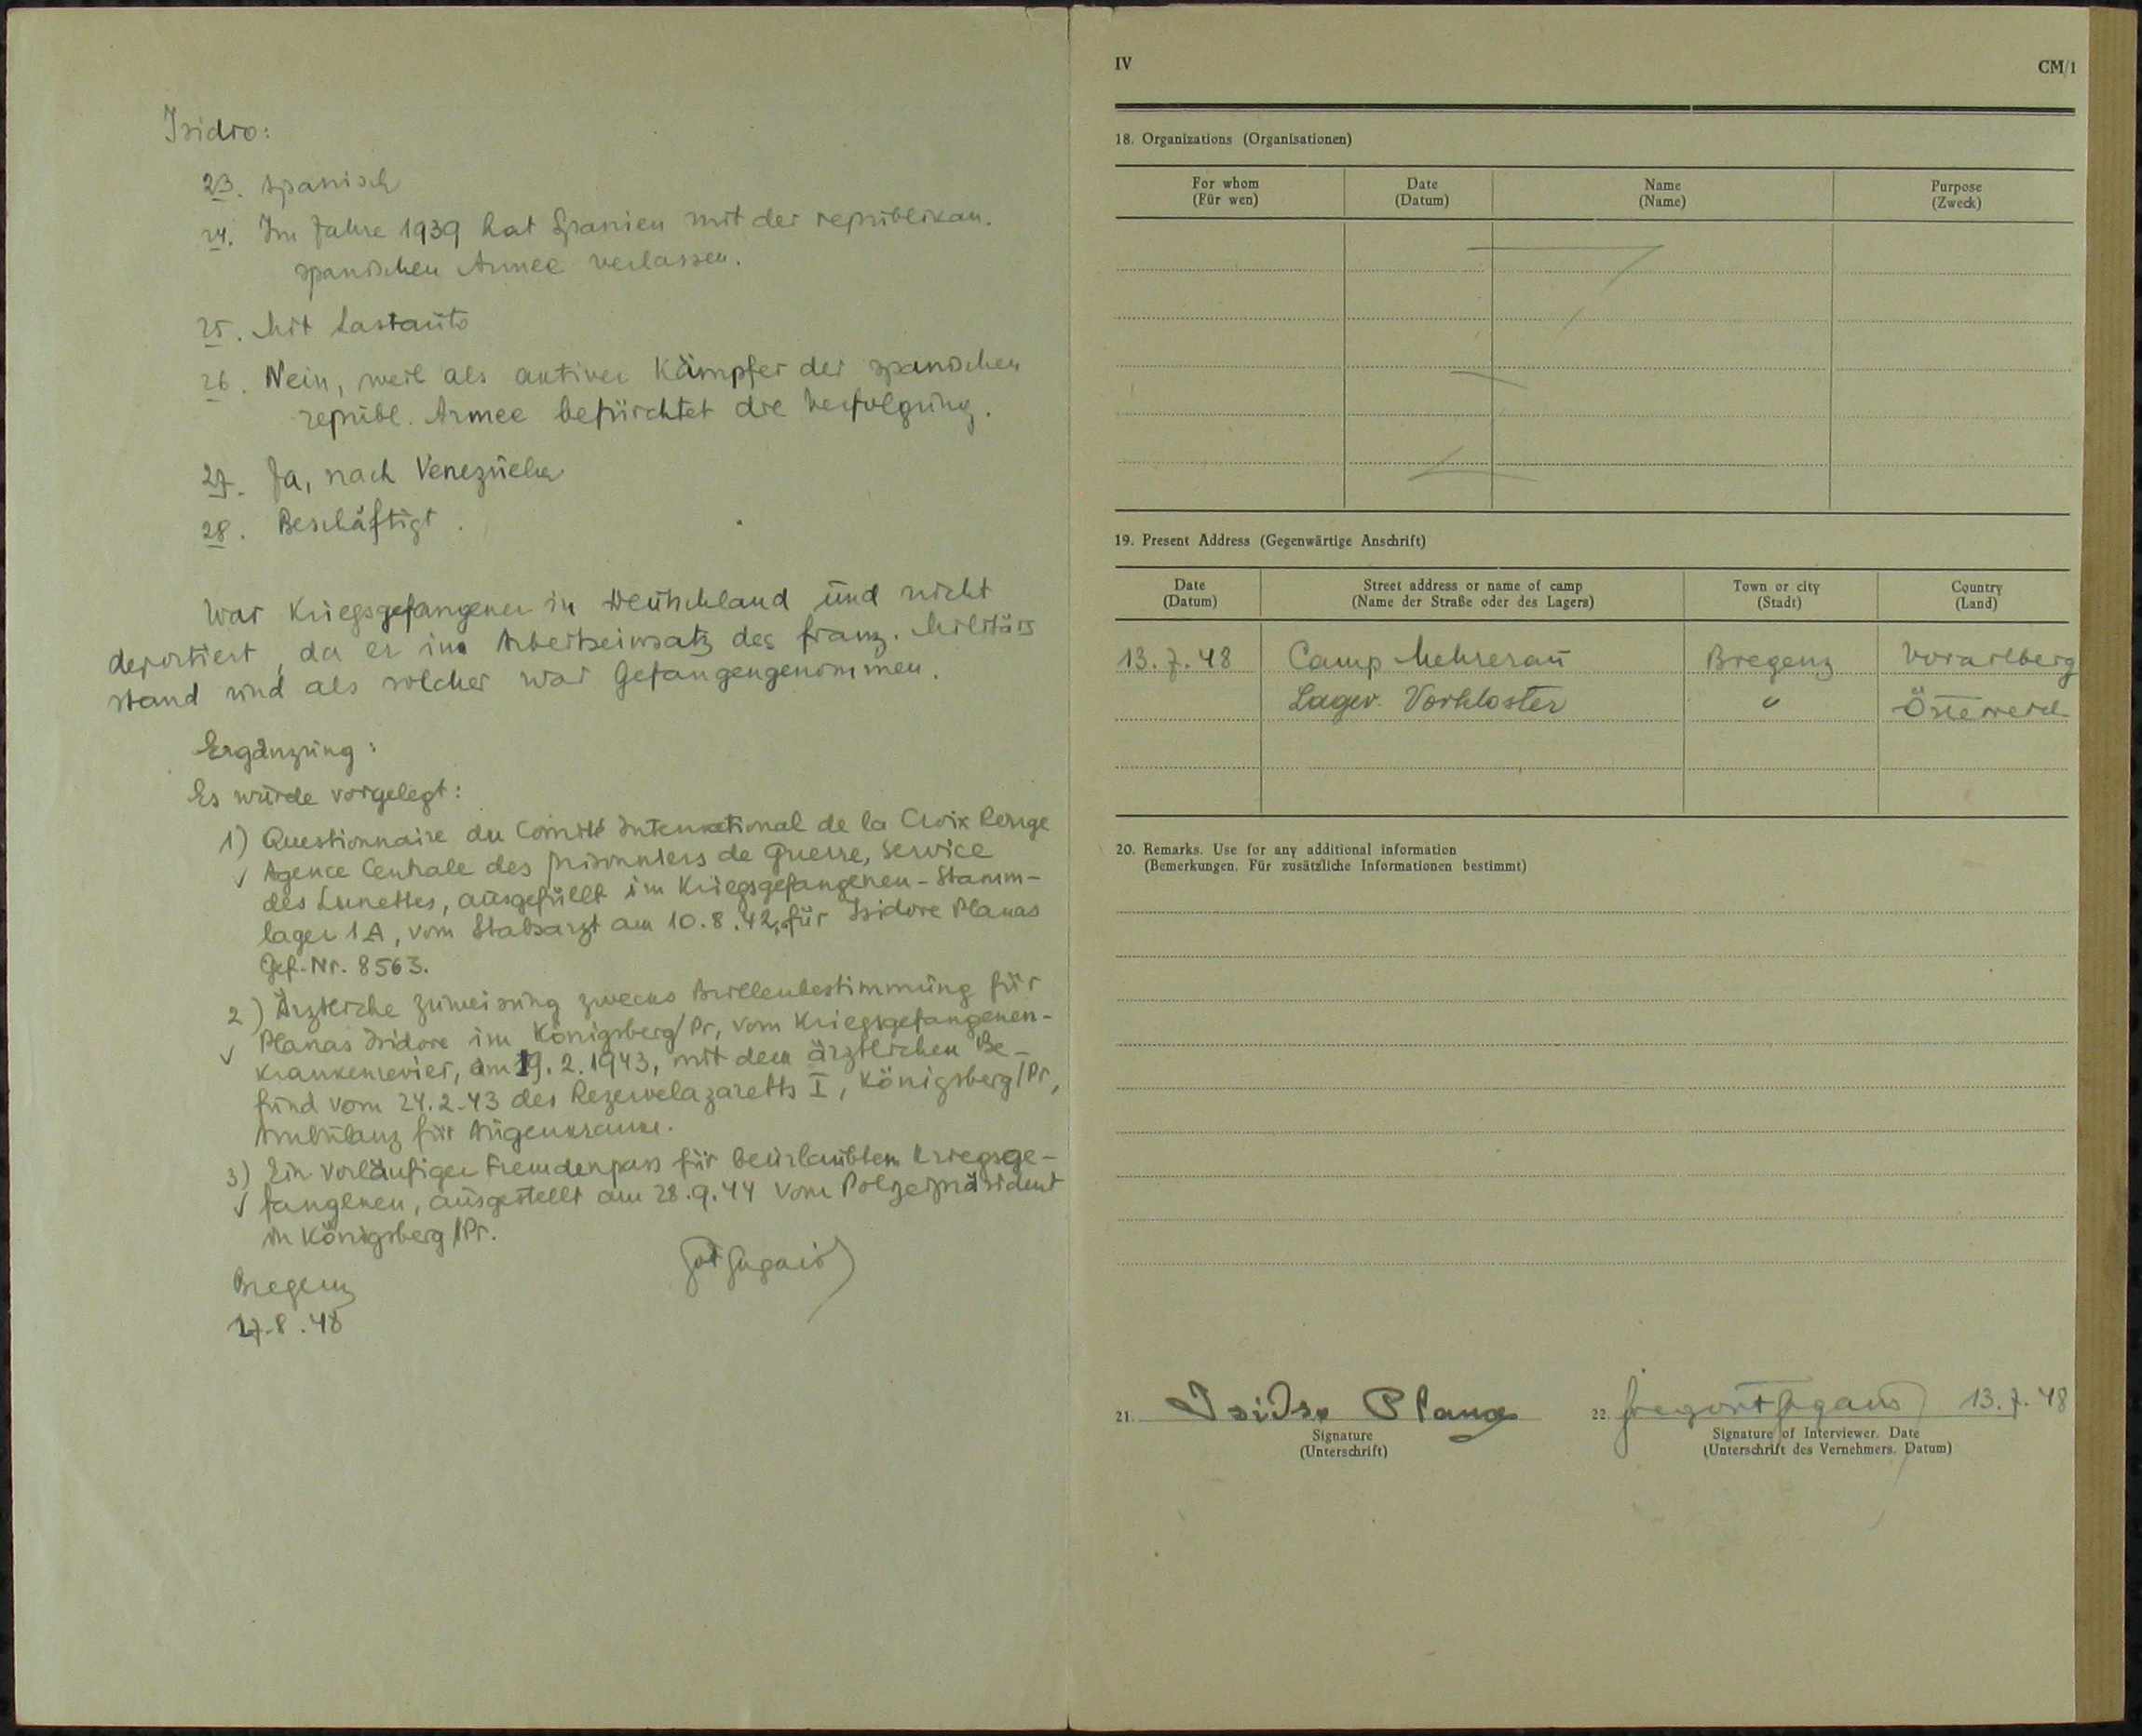 Isidro:
23. Spanisch
24. Im Jahre 1939 hat Spanien mit der republikan.
spanischen Armee verlassen.
25. Mit Lastauto
26. Nein, weil als aktiver Kämpfer der spanischen
republ. Armee befürchtet die Verfolgung.
27. Ja, nach Venezuela
28. Beschäftigt.
War Kriegsgefangener in Deutschland und nicht
deportiert, da er im Arbeitseinsatz des franz. Militärs
stand und als solcher war Gefangengenommen.
Ergänzung:
Es wurde vorgelegt:
1) Questionnaire du Comité International de la Croix Rouge
√ Agence Centrale des prisonniers de Guerre, Service
des Lunettes, ausgefüllt im Kriegsgefangenen-Stamm-
lager 1A, vom Stabsarzt am 10.8.42, für Isidore Planas
Gef.-Nr. 8563.
2) Ärztliche Zuweisung zwecks Brillenbestimmung für
√ Planas Isidore im Königsberg/Pr, vom Kriegsgefangenen-
krankenrevier, am 19.2.1943, mit dem ärztlichen Be-
fund vom 24.2.43 des Reservelazaretts I, Königsberg/Pr,
Ambulanz für Augenkranke.
3) Ein vorläufiger Fremdenpass für beurlaubten Kriegsge-
√ fangenen, ausgestellt am 28.9.44 vom Polizeipräsident
in Königsberg/Pr.
Bregenz
17.8.48
IV
CM/1
18. Organizations (Organisationen)
For whom Date Name Purpose
(Für wen) (Datum) (Name) (Zweck)
19. Present Address (Gegenwärtige Anschrift)
Date Street address or name of camp Town or city Country
(Datum) (Name der Straße oder des Lagers) (Stadt) (Land)
13.7.48 Camp Mehrerau Bregenz Vorarlberg
Lager Vorkloster " Österreich
20. Remarks. Use for any additional information
(Bemerkungen. Für zusätzliche Informationen bestimmt)
21. Isidro Planas 22. 13.7.48
Signature Signature of Interviewer. Date
(Unterschrift) (Unterschrift des Vernehmers. Datum)